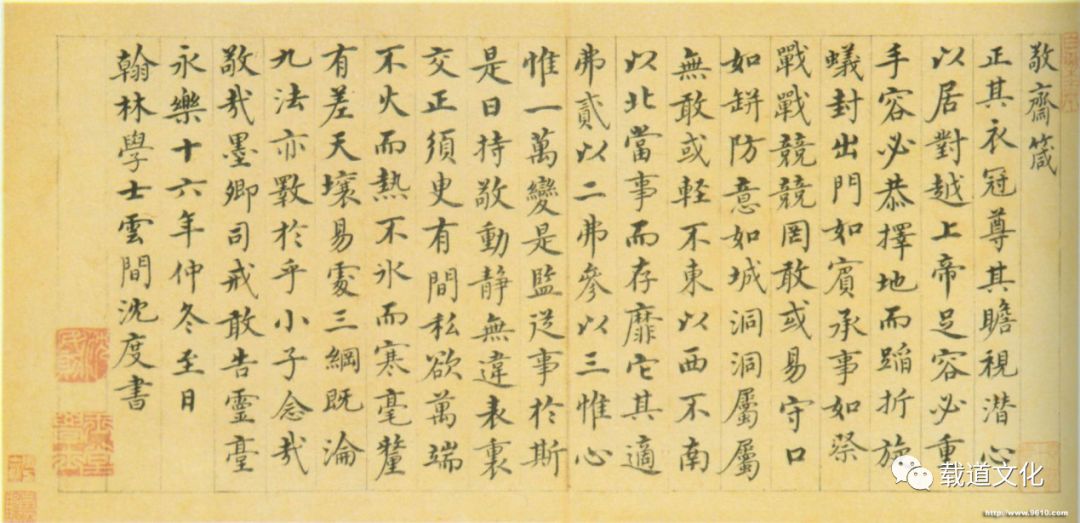 敬齋箴
正其衣冠尊其瞻視潛心
以居對越上帝足容必重
手容必恭擇地而蹈折旋
蟻封出門如賓承事如祭
戰戰競競罔敢或易守口
如缾防意如城洞洞屬屬
無敢或輕不東以西不南
以北當事而存靡它其適
弗貳以二弗參以三惟心
惟一萬變是監從事於斯
是曰持敬動靜無違表裏
交正須臾有間私欲萬端
不火而熱不氷而寒毫釐
有差天壤易處三綱既淪
九法亦斁於乎小子念哉
敬哉墨卿司戒敢告靈臺
永樂十六年仲冬至日
翰林學士雲間沈度書
载道文化
http://www.9610.com